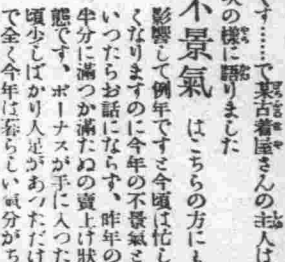 です……で某古着屋さんの主人は
次の様に語りました
不景氣 はこちらの方にも
影響して例年ですと今頃は忙し
くなりますのに今年の不景氣と
いつたらお話にならず、昨年の
半分に滿つか滿たぬの賣上げ狀
態です、ボーナスが手に入つた
頃少しばかり人足があつただけ
で全く今年は暮らしい氣分がち